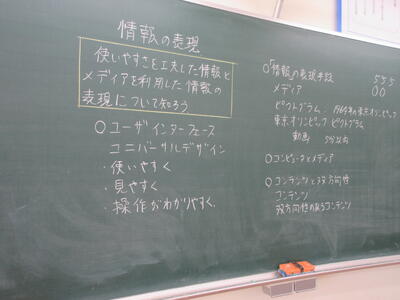 情報の表現
使いやすさを工夫した情報と
メディアを利用した情報の
表現について知ろう
○ユーザインターフェース
ユニバーサルデザイン
・使いやすく
・見やすく
・操作がわかりやすく
○「情報の表現手段 555
メディア 00
ピクトグラム:1964年の東京オリンピック
東京オリンピックピクトグラム
動画 5分以内
○コンピュータとメディア
○コンテンツと双方向性
コンテンツ
双方向性のあるコンテンツ